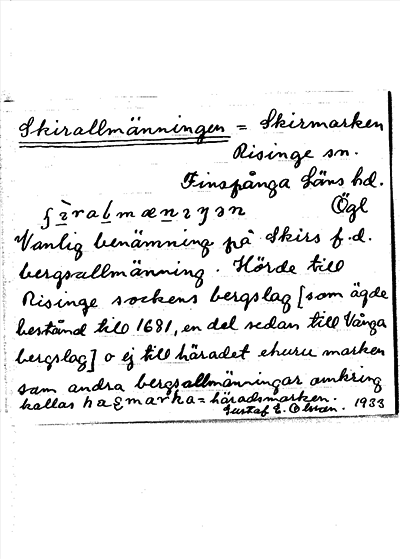 Skirallmänningen = Skirmarken
Risinge sn.
Finspånga Läns hd.
Ögl
Vanlig benämning på Skirs f.d.
bergsallmänning. Hörde till
Risinge sockens bergslag [som ägde
bestånd till 1681, en del sedan till Vånga
bergslag] o ej till häradet ehuru marken
som andra bergsallmänningar omkring
kallas = häradsmarken.
Gustaf E. Olsson. 1933